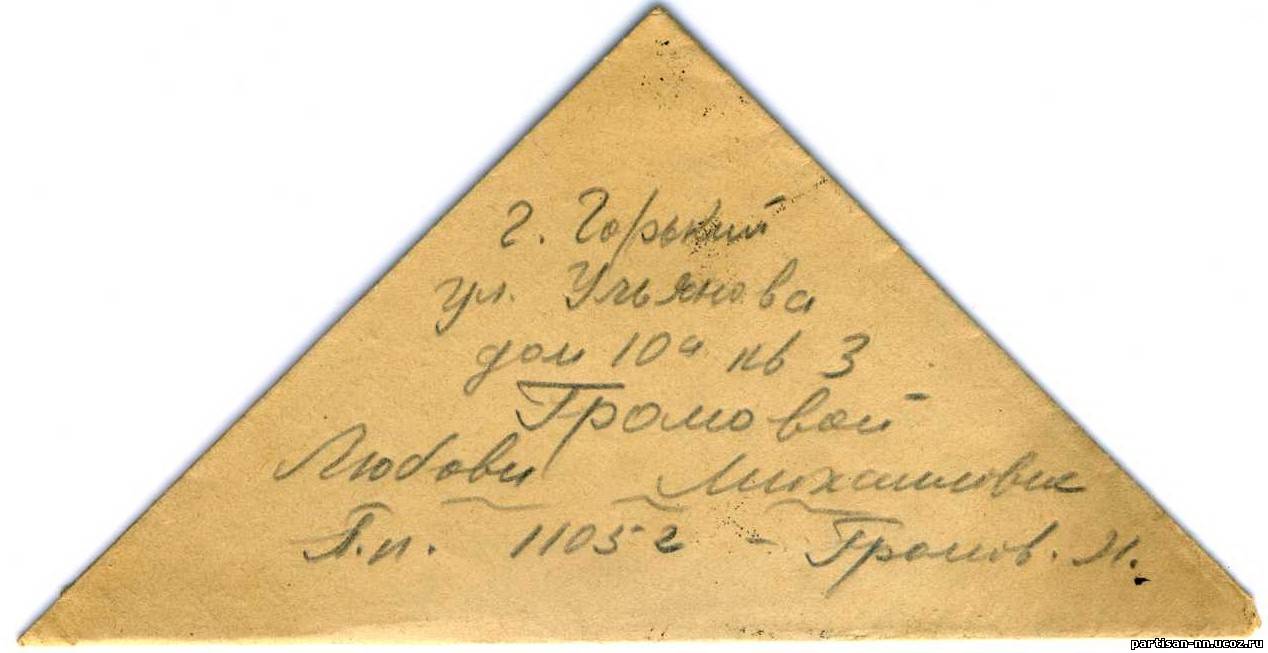 г. Горький
ул. Ульянова
дом 10а кв 3
Громовой
Любови Михайловне
П.п. 11052 - Громов. Н.
partisan-nn.ucoz.ru